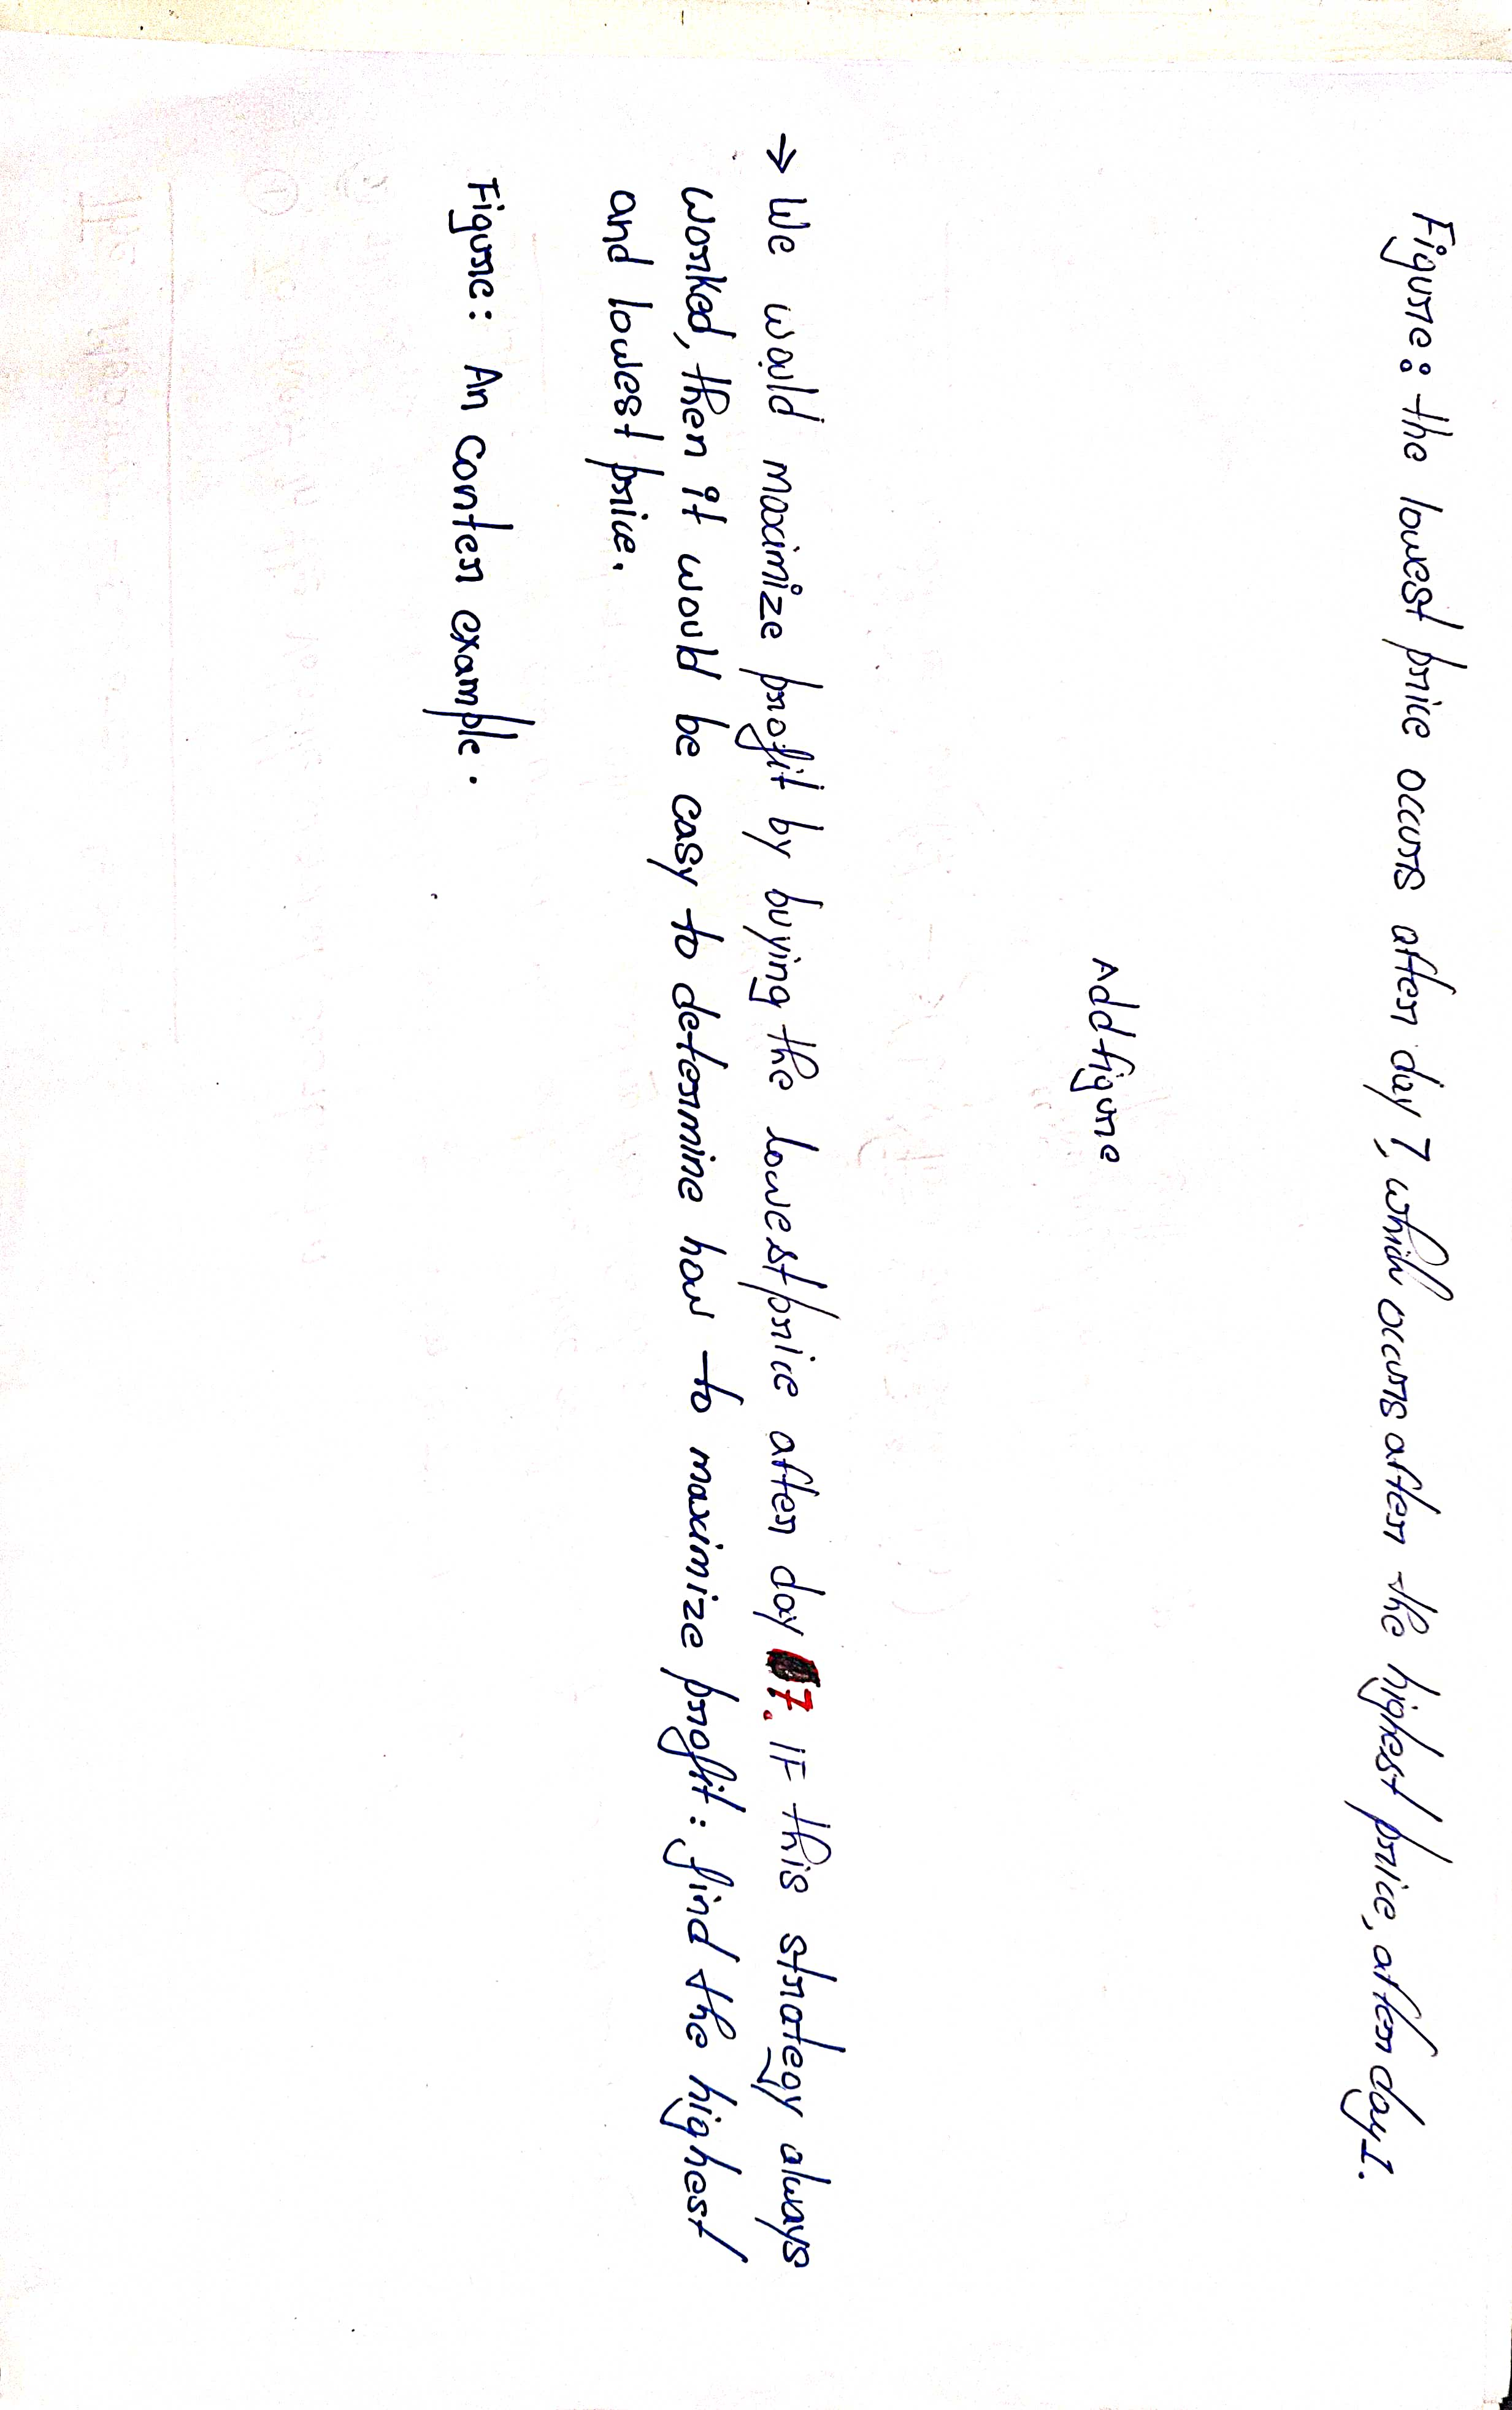 Figure: the lowest price occurs after day 7, which occurs after the highest price, after day 1.
Add figure
→ We would maximize profit by buying the lowest price after day 7. IF this strategy always
worked, then it would be easy to determine how to maximize profit: find the highest
and lowest price.
Figure: An conter example.